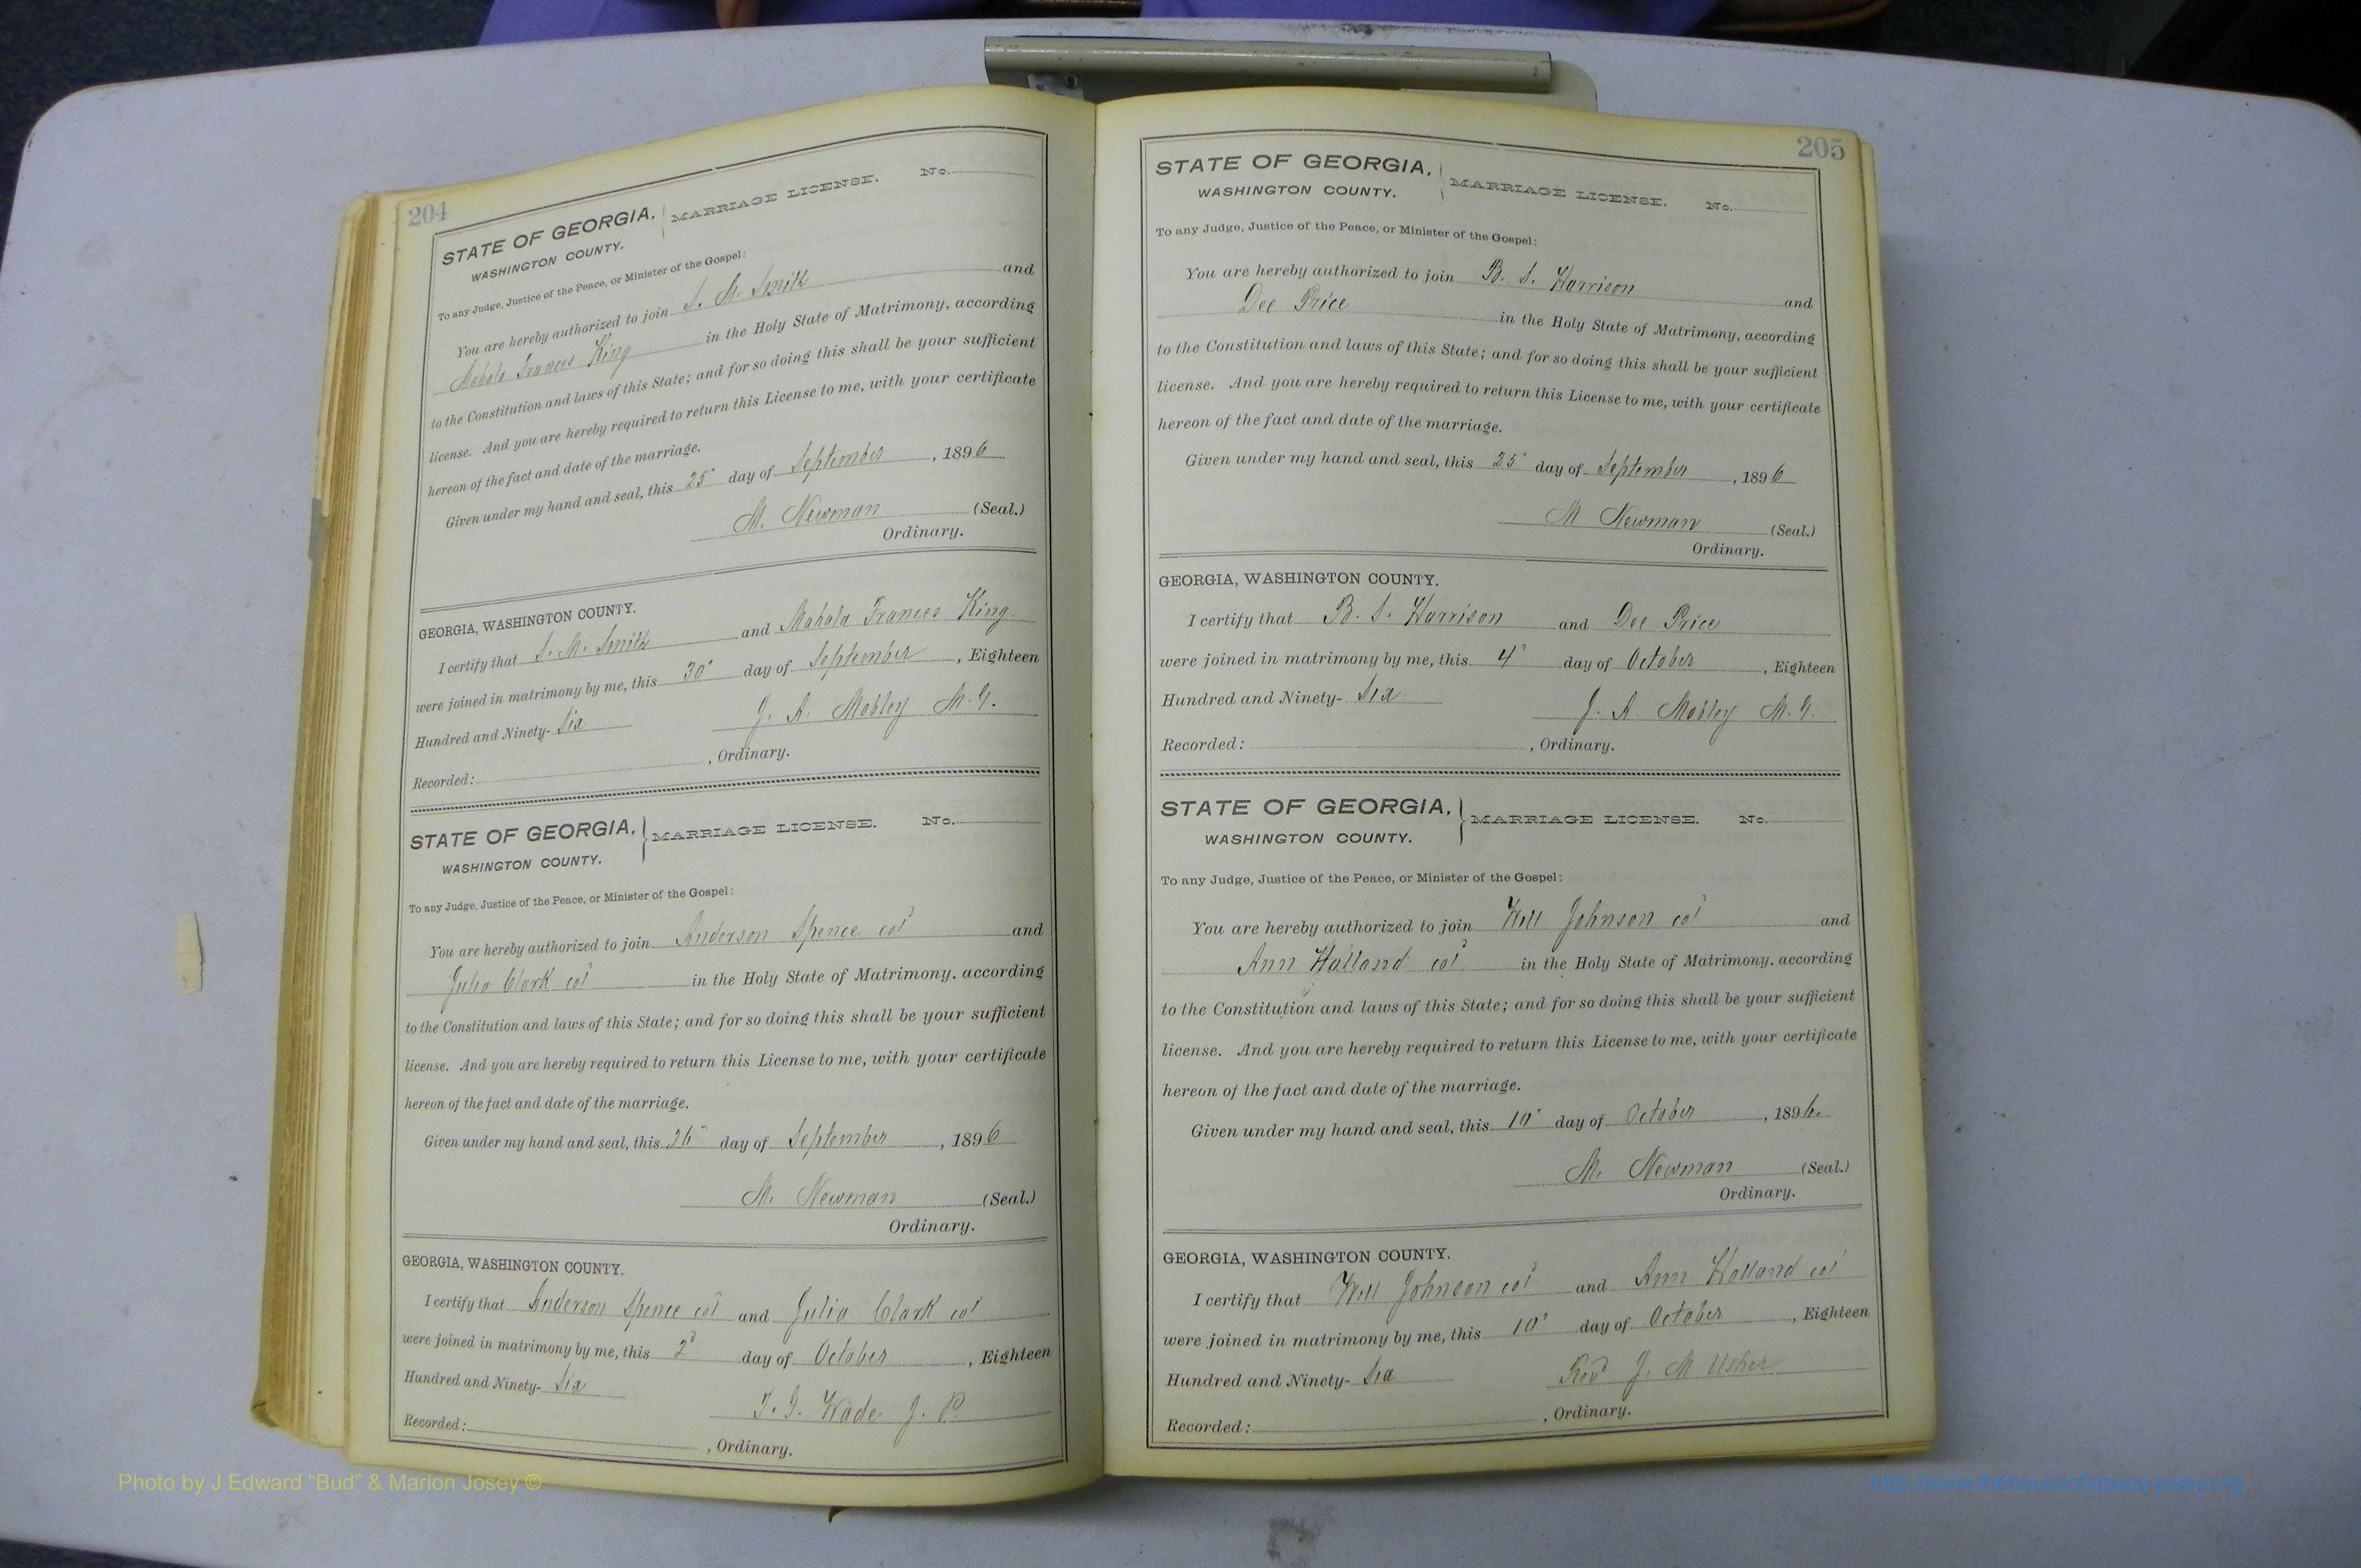 204
STATE OF GEORGIA, MARRIAGE LICENSE. No.
WASHINGTON COUNTY.
To any Judge, Justice of the Peace, or Minister of the Gospel:
You are hereby authorized to join S. M. Smith and
Mahala Frances King in the Holy State of Matrimony, according
to the Constitution and laws of this State; and for so doing this shall be your sufficient
license. And you are hereby required to return this License to me, with your certificate
hereon of the fact and date of the marriage.
Given under my hand and seal, this 25" day of September, 1896
M. Newman (Seal.)
Ordinary.
GEORGIA, WASHINGTON COUNTY.
I certify that S. M. Smith and Mahala Frances King.
were joined in matrimony by me, this 30" day of September, Eighteen
Hundred and Ninety-Six J. A. Mobley M.G.
Recorded: , Ordinary.
STATE OF GEORGIA, MARRIAGE LICENSE. No.
WASHINGTON COUNTY.
To any Judge, Justice of the Peace, or Minister of the Gospel:
You are hereby authorized to join Anderson Spence col and
Julia Clark col in the Holy State of Matrimony, according
to the Constitution and laws of this State; and for so doing this shall be your sufficient
license. And you are hereby required to return this License to me, with your certificate
hereon of the fact and date of the marriage.
Given under my hand and seal, this 26" day of September, 1896
M. Newman (Seal.)
Ordinary.
GEORGIA, WASHINGTON COUNTY.
I certify that Anderson Spence col and Julia Clark col
were joined in matrimony by me, this 2d day of October, Eighteen
Hundred and Ninety-Six T. J. Wade J. P.
Recorded: , Ordinary.
205
STATE OF GEORGIA, MARRIAGE LICENSE. No.
WASHINGTON COUNTY.
To any Judge, Justice of the Peace, or Minister of the Gospel:
You are hereby authorized to join B. S. Harrison and
Dee Price in the Holy State of Matrimony, according
to the Constitution and laws of this State; and for so doing this shall be your sufficient
license. And you are hereby required to return this License to me, with your certificate
hereon of the fact and date of the marriage.
Given under my hand and seal, this 25" day of September, 1896
M Newman (Seal.)
Ordinary.
GEORGIA, WASHINGTON COUNTY.
I certify that B. S. Harrison and Dee Price
were joined in matrimony by me, this 4" day of October, Eighteen
Hundred and Ninety-Six J. A. Mobley M.G.
Recorded: , Ordinary.
STATE OF GEORGIA, MARRIAGE LICENSE. No.
WASHINGTON COUNTY.
To any Judge, Justice of the Peace, or Minister of the Gospel:
You are hereby authorized to join Will Johnson col and
Ann Holland col in the Holy State of Matrimony, according
to the Constitution and laws of this State; and for so doing this shall be your sufficient
license. And you are hereby required to return this License to me, with your certificate
hereon of the fact and date of the marriage.
Given under my hand and seal, this 10" day of October, 1896.
M. Newman (Seal.)
Ordinary.
GEORGIA, WASHINGTON COUNTY.
I certify that Will Johnson col and Ann Holland col
were joined in matrimony by me, this 10" day of October, Eighteen
Hundred and Ninety-Six Revd J. M Usher
Recorded: , Ordinary.
Photo by J Edward "Bud" & Marion Josey ©
http://www.thehouseofjossey-josey.org